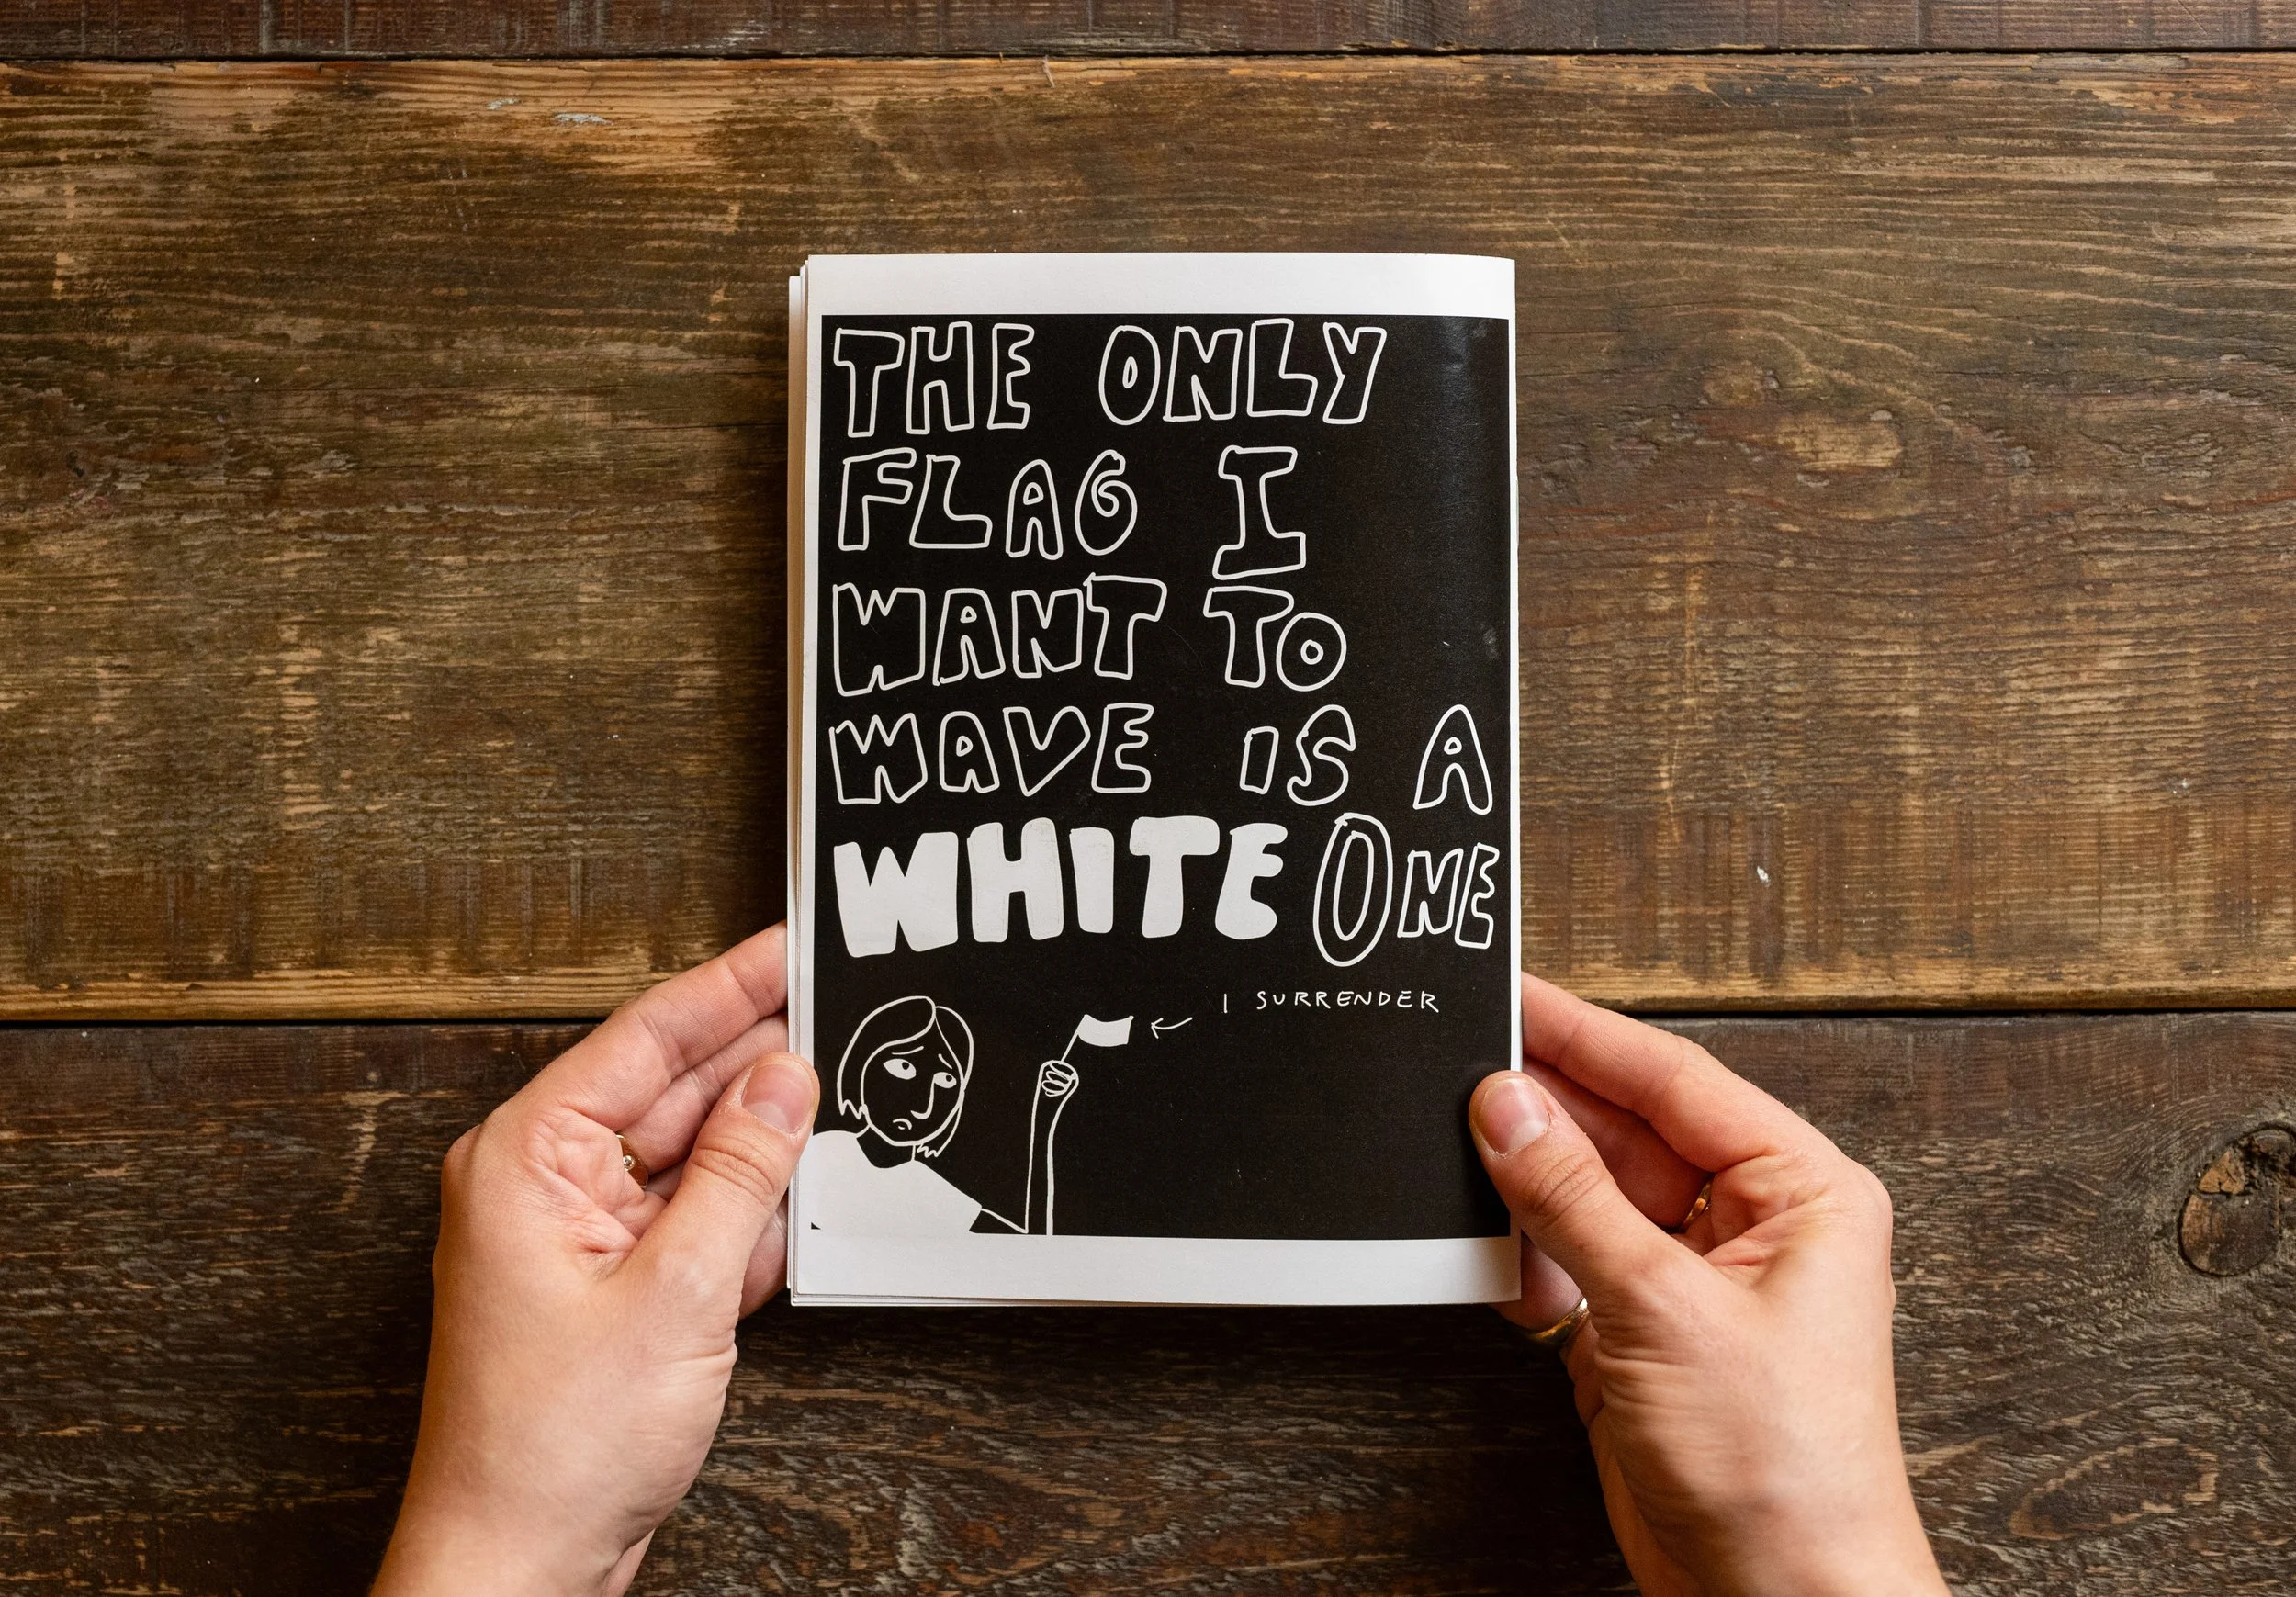 THE ONLY
FLAG I
WANT TO
WAVE IS A
WHITE ONE
I SURRENDER